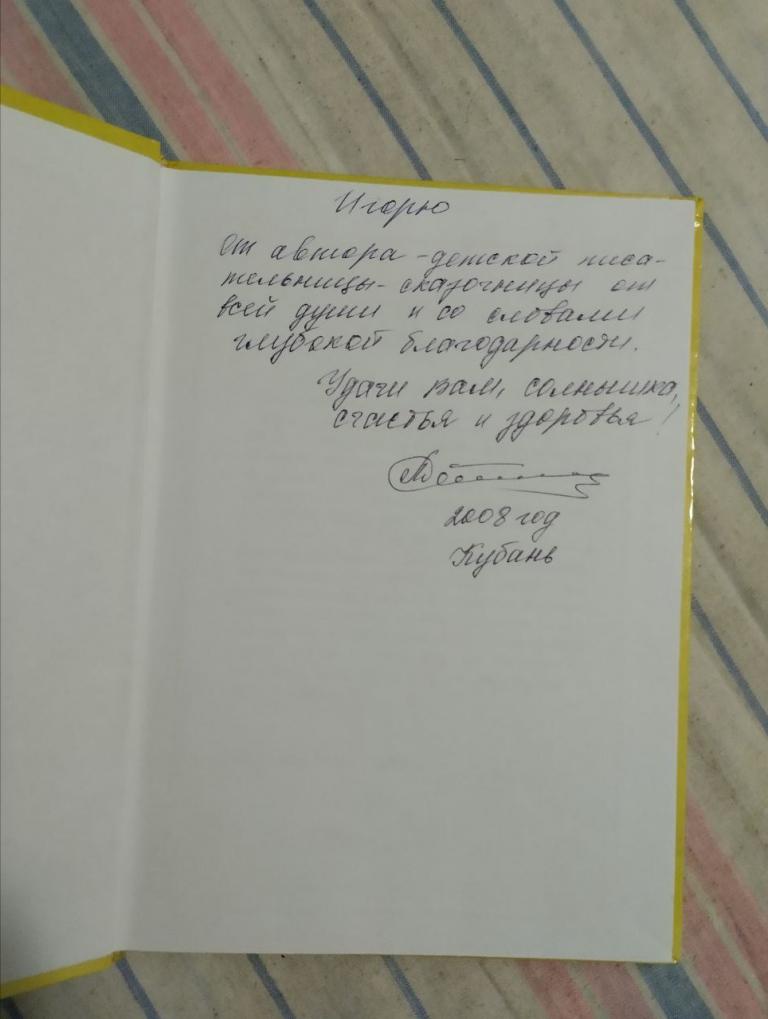 Игорю
от автора - детской писа-
тельницы - сказочницы от
всей души и со словами
глубокой благодарности.
Удачи вам, солнышка,
счастья и здоровья!
2008 год
Кубань